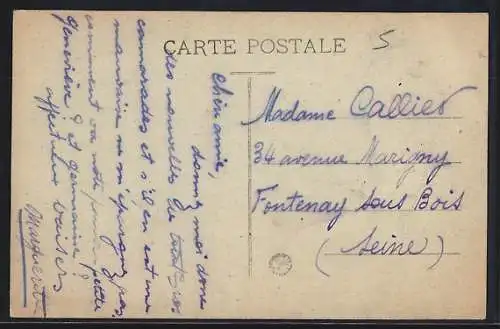 CARTE POSTALE
5
Chère amie,
donnez moi donc
des nouvelles de toutes nos
camarades et s'il en est une
mauvaise ne m'épargnez pas.
comment va notre pauvre petite
Geneviève ? et Germaine ?
affectueux baisers
Marguerite
Madame Callier
34 avenue Marigny
Fontenay sous Bois
(Seine)